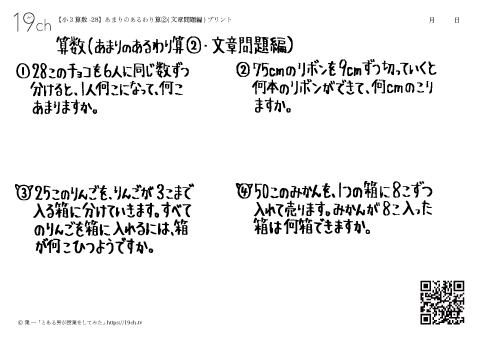 19ch 【小3算数-28】あまりのあるわり算②(文章問題編)プリント 月 日
算数(あまりのあるわり算②・文章問題編)
①28このチョコを6人に同じ数ずつ
分けると、1人何こになって、何こ
あまりますか。
②75cmのリボンを9cmずつ切っていくと
何本のリボンができて、何cmのこり
ますか。
③25このりんごを、りんごが3こまで
入る箱に分けていきます。すべて
のりんごを箱に入れるには、箱
が何こひつようですか。
④50このみかんを、1つの箱に8こずつ
入れて売ります。みかんが8こ入った
箱は何箱できますか。
© 葉一「とある男が授業をしてみた」https://19ch.tv